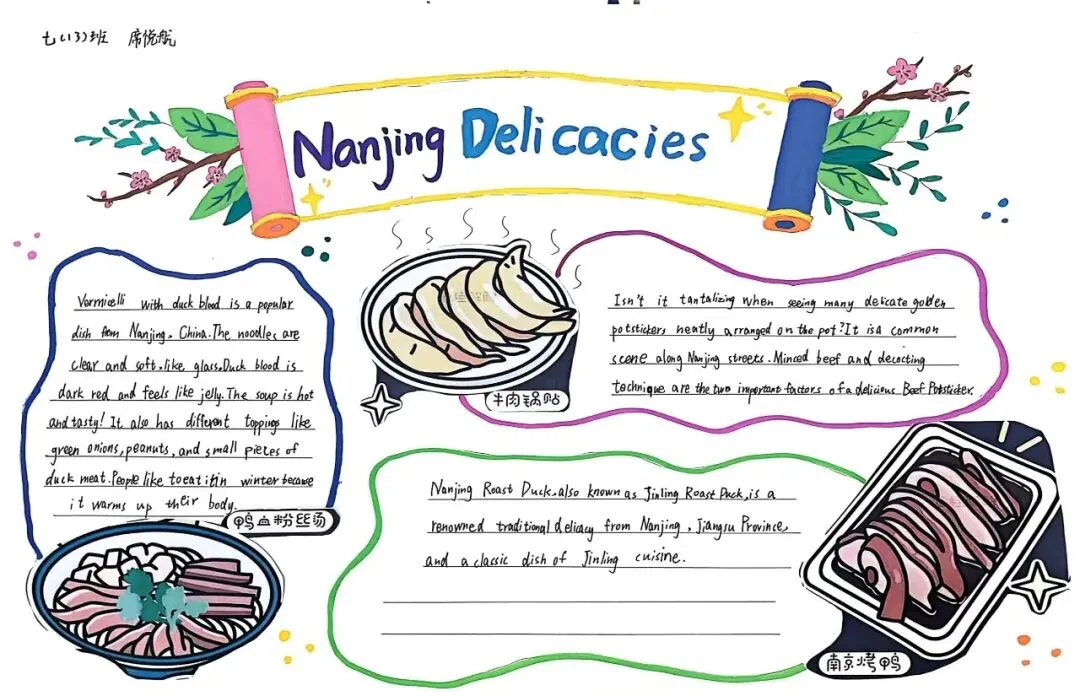 七(13)班 席悦航
Nanjing Delicacies
Vormicelli with duck blood is a popular
dish from Nanjing, China. The noodles are
clear and soft. like glass. Duck blood is
dark red and feels like jelly. The soup is hot
and tasty! It also has different toppings like
green onions, peanuts, and small pieces of
duck meat. People like to eat it in winter because
it warms up their body.
鸭血粉丝汤
牛肉锅贴
Isn't it tantalizing when seeing many delicate golden
potstickers neatly arranged on the pot? It is a common
scene along Nanjing streets. Minced beef and decocting
technique are the two important factors of a delicious Beef Potsticker.
Nanjing Roast Duck. also known as Jinling Roast Duck, is a
renowned traditional delicacy from Nanjing, Jiangsu Province,
and a classic dish of Jinling cuisine.
南京烤鸭